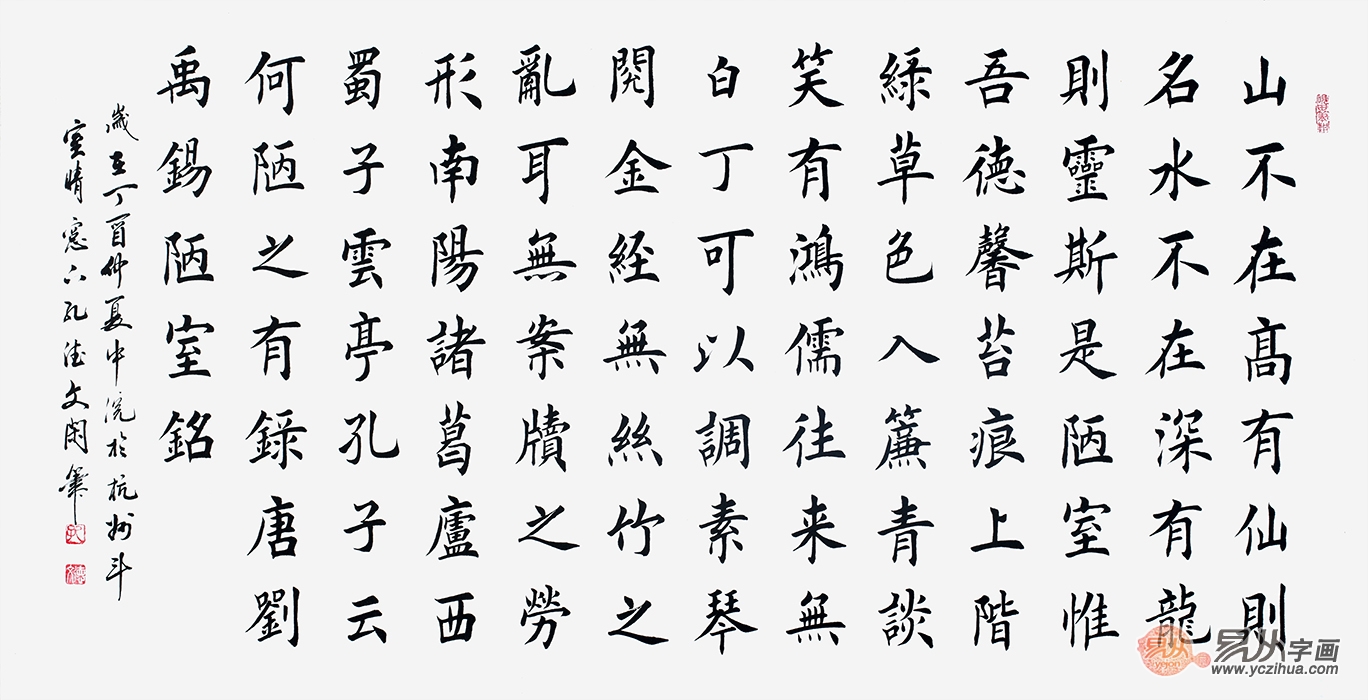 山不在髙有仙則
名水不在深有龍
則靈斯是陋室惟
吾德馨苔痕上階
緑草色入簾青談
笑有鴻儒往来無
白丁可以調素琴
閲金經無絲竹之
亂耳無案牘之勞
形南陽諸葛廬西
蜀子雲亭孔子云
何陋之有錄唐劉
禹錫陋室銘
歲在丁酉仲夏中浣於杭州斗
室晴窓下孔德文閑筆
易从字画
www.yczihua.com